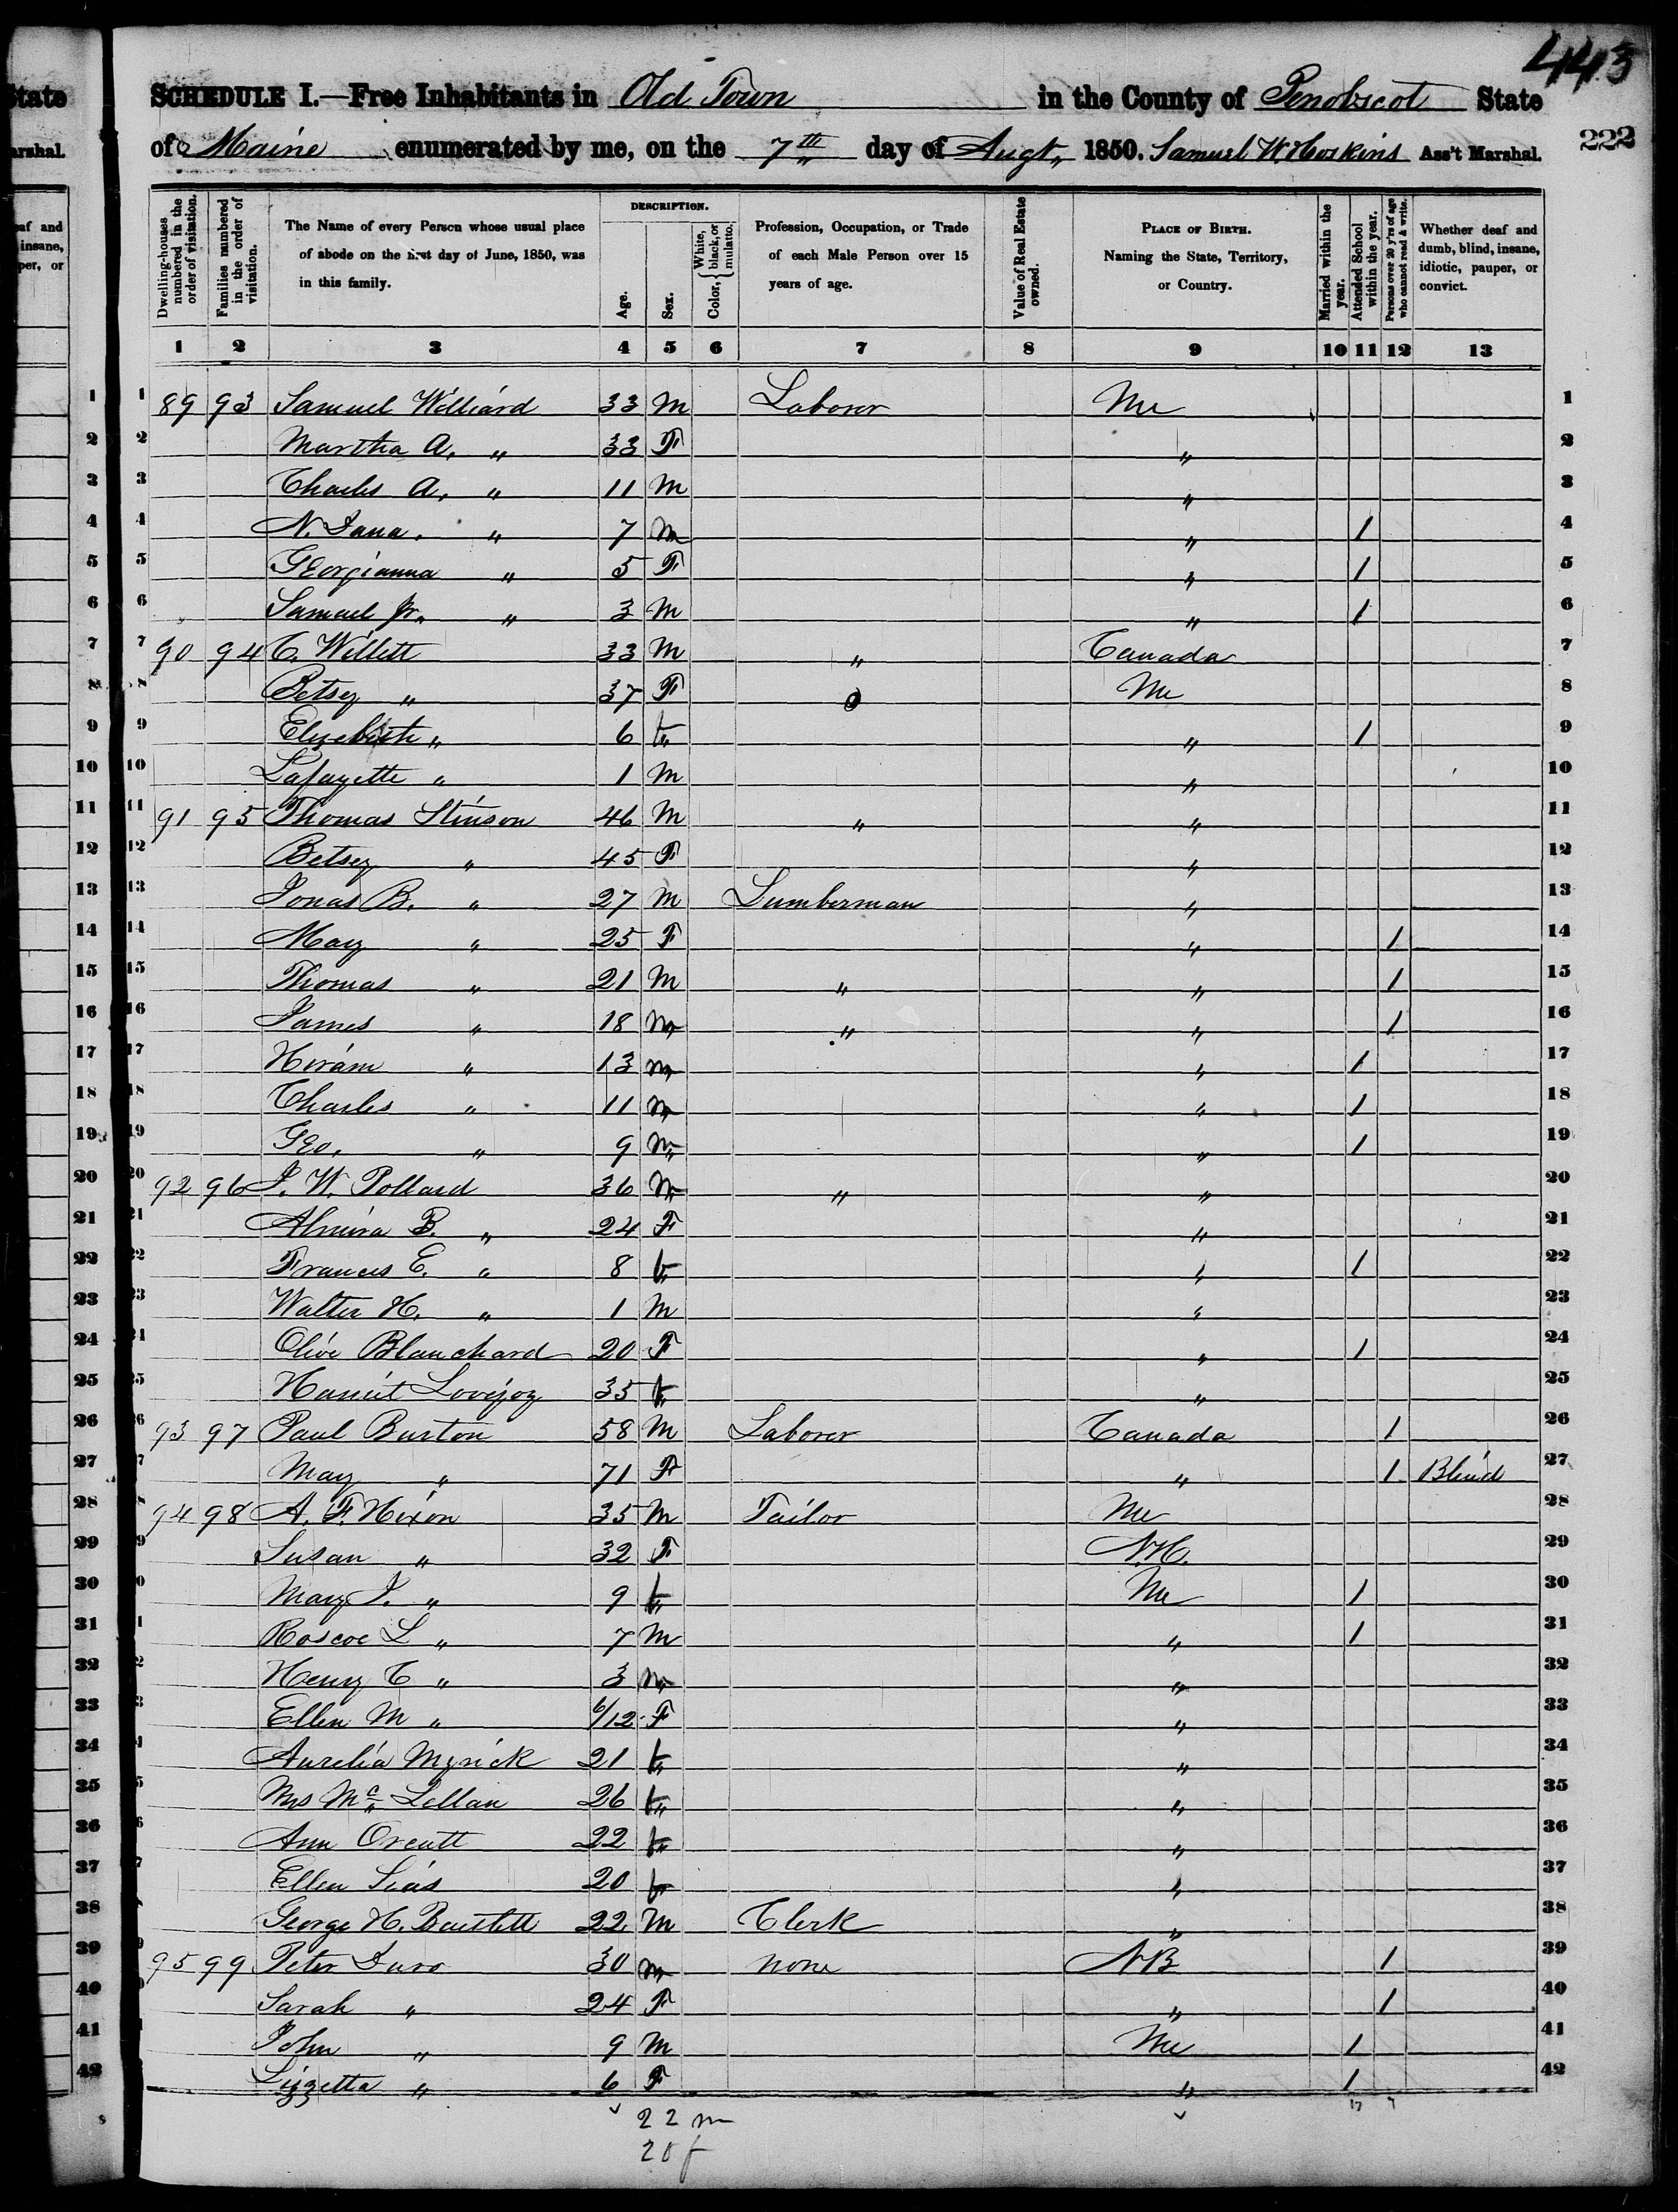 443
SCHEDULE I.—Free Inhabitants in Old Town in the County of Penobscot State
of Maine enumerated by me, on the 7th day of Augt, 1850. Samuel W Hoskins Ass't Marshal. 222
DESCRIPTION.
Dwelling-houses numbered in the order of visitation. Families numbered in the order of visitation. The Name of every Person whose usual place of abode on the first day of June, 1850, was in this family. Age. Sex. Color, White, black, or mulatto. Profession, Occupation, or Trade of each Male Person over 15 years of age. Value of Real Estate owned. PLACE OF BIRTH. Naming the State, Territory, or Country. Married within the year. Attended School within the year. Persons over 20 y'rs of age who cannot read & write. Whether deaf and dumb, blind, insane, idiotic, pauper, or convict.
1 2 3 4 5 6 7 8 9 10 11 12 13
1 89 93 Samuel Williard 33 M Laborer Me 1
2 Martha A. " 33 F " 2
3 Charles A. " 11 M " 3
4 N. Dana. " 7 M " 1 4
5 Georgianna " 5 F " 1 5
6 Samuel Jr. " 3 M " 1 6
7 90 94 C. Willett 33 M " Canada 7
8 Betsey " 37 F Me 8
9 Elizebeth " 6 " " 1 9
10 Lafayette " 1 M " 10
11 91 95 Thomas Stinson 46 M " " 11
12 Betsey " 45 F " 12
13 Jonas B. " 27 M Lumberman " 13
14 Mary " 25 F " 1 14
15 Thomas " 21 M " " 1 15
16 James " 18 M " " 1 16
17 Hiram " 13 M " 1 17
18 Charles " 11 M " 1 18
19 Geo. " 9 M " 1 19
20 92 96 J. W. Pollard 36 M " " 20
21 Almira B. " 24 F " 21
22 Frances E. " 8 " " 1 22
23 Walter H. " 1 M " 23
24 Olive Blanchard 20 F " 1 24
25 Harriet Lovejoy 35 " " 25
26 93 97 Paul Burton 58 M Laborer Canada 1 26
27 Mary " 71 F " 1 Blind 27
28 94 98 A. F. Hixon 35 M Tailor Me 28
29 Susan " 32 F N.H. 29
30 Mary J. " 9 " Me 1 30
31 Roscoe L " 7 M " 1 31
32 Henry C " 3 M " 32
33 Ellen M " 6/12 F " 33
34 Aurelia Myrick 21 " " 34
35 Mrs Mc Lellan 26 " " 35
36 Ann Orcutt 22 " " 36
37 Ellen Sias 20 " " 37
38 George H. Bartlett 22 M Clerk " 38
39 95 99 Peter Duro 30 M none N B 1 39
40 Sarah " 24 F " 1 40
41 John " 9 M Me 1 41
42 Lizzetta " 6 F " 1 42
22 m
20 f